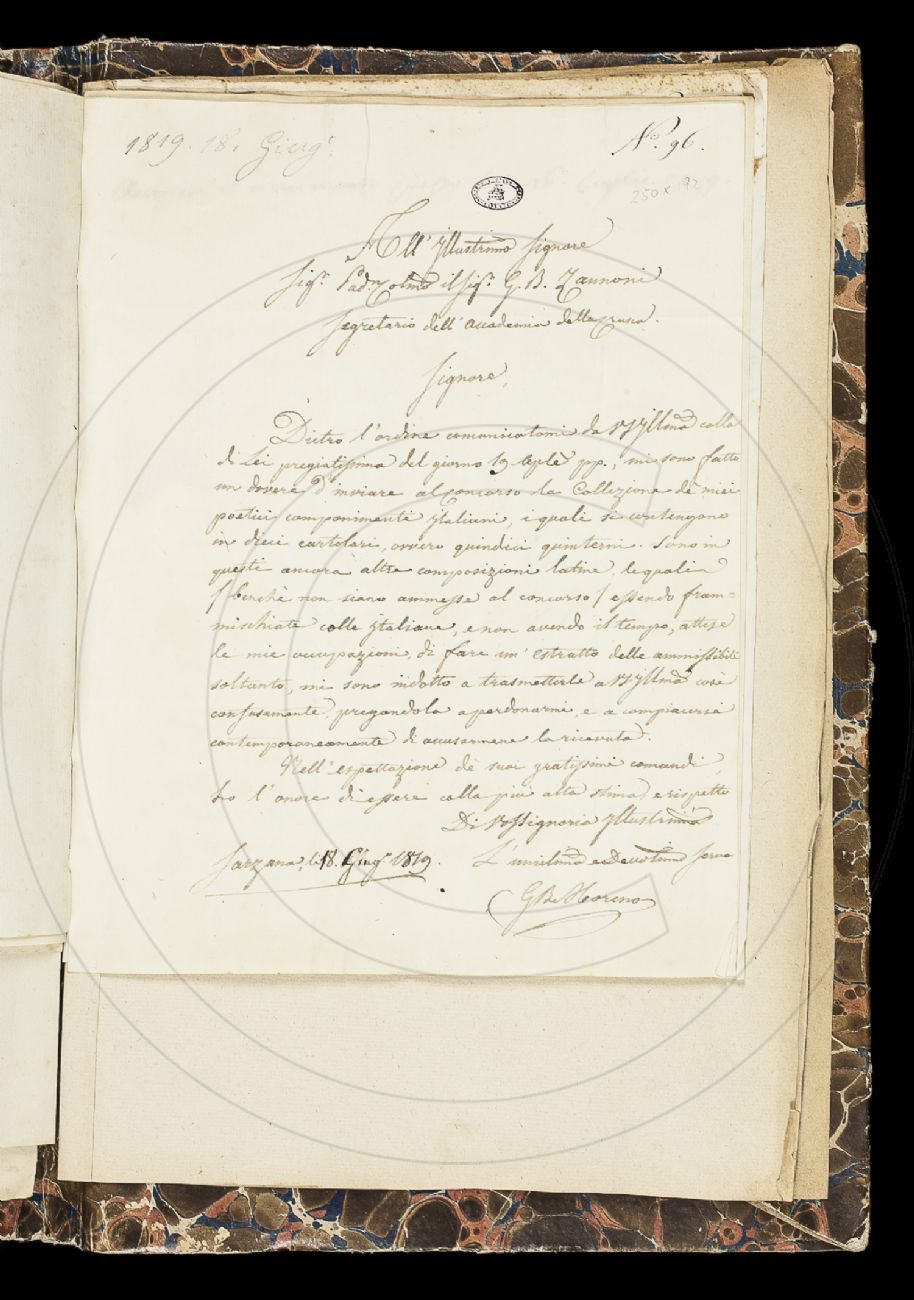 1819. 18. Giug.º
Nº. 96.
250 x 192
All' Illustrimo Signore
Sigr. Padrn Colmo il Sigr. G. B. Zannoni
Segretario dell' Accademia della Crusca.
Signore,
Dietro l'ordine comunicatomi da VSIllma colla
di Lei pregiatissima del giorno 19 7bre pp., mi sono fatto
un dovere d'inviare al concorso la Collezione de' miei
poetici componimenti Italiani, i quali si contengono
in dieci cartolari, ovvero quindici quinterni. Sono in
questi ancora altre composizioni latine, le quali
(benchè non siano ammesse al concorso) essendo fram=
mischiate colle Italiane, e non avendo il tempo, attese
le mie occupazioni, di fare un' estratto delle ammissibili
soltanto, mi sono indotto a trasmetterle a VSIllma così
confusamente, pregandola a perdonarmi, e a compiacersi
contemporaneamente di accusarmene la ricevuta.
Nell' espettazione de' suoi gratissimi comandi,
ho l'onore di essere colla più alta stima, e rispetto
Di Vossignoria Illustrima
Sarzana, li 18. Giugº 1819.
L'umilimo e devotimo servo
GB